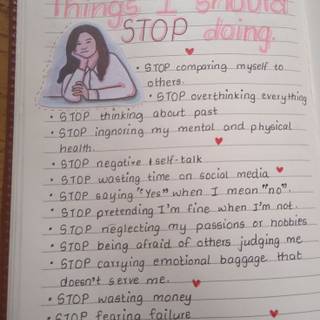 Things I should
STOP doing.
• STOP comparing myself to
others.
• STOP overthinking everything
• STOP thinking about past
• STOP ingnoring my mental and physical
health.
• STOP negative self-talk
• STOP wasting time on social media
• STOP saying "Yes" when I mean "no".
• STOP pretending I'm fine when I'm not.
• STOP neglecting my passions or hobbies
• STOP being afraid of others judging me
• STOP carrying emotional baggage that
doesn't serve me.
• STOP wasting money
• STOP fearing failure